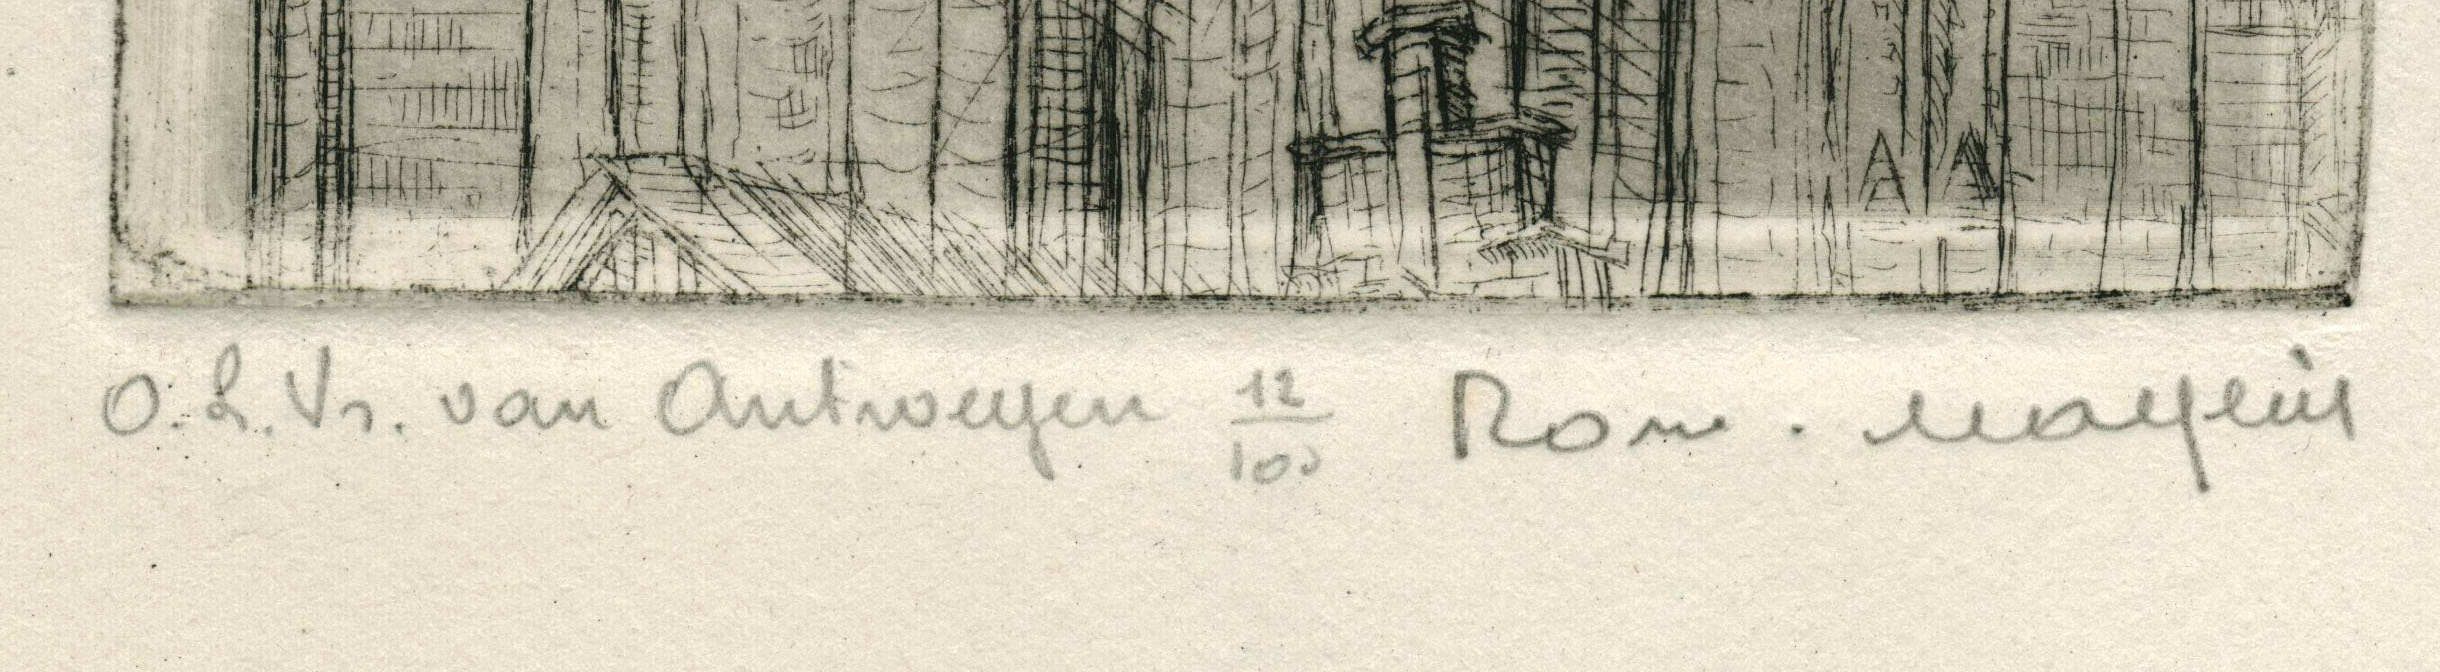 O.L.Vr. van Antwerpen 12/100 Rom.